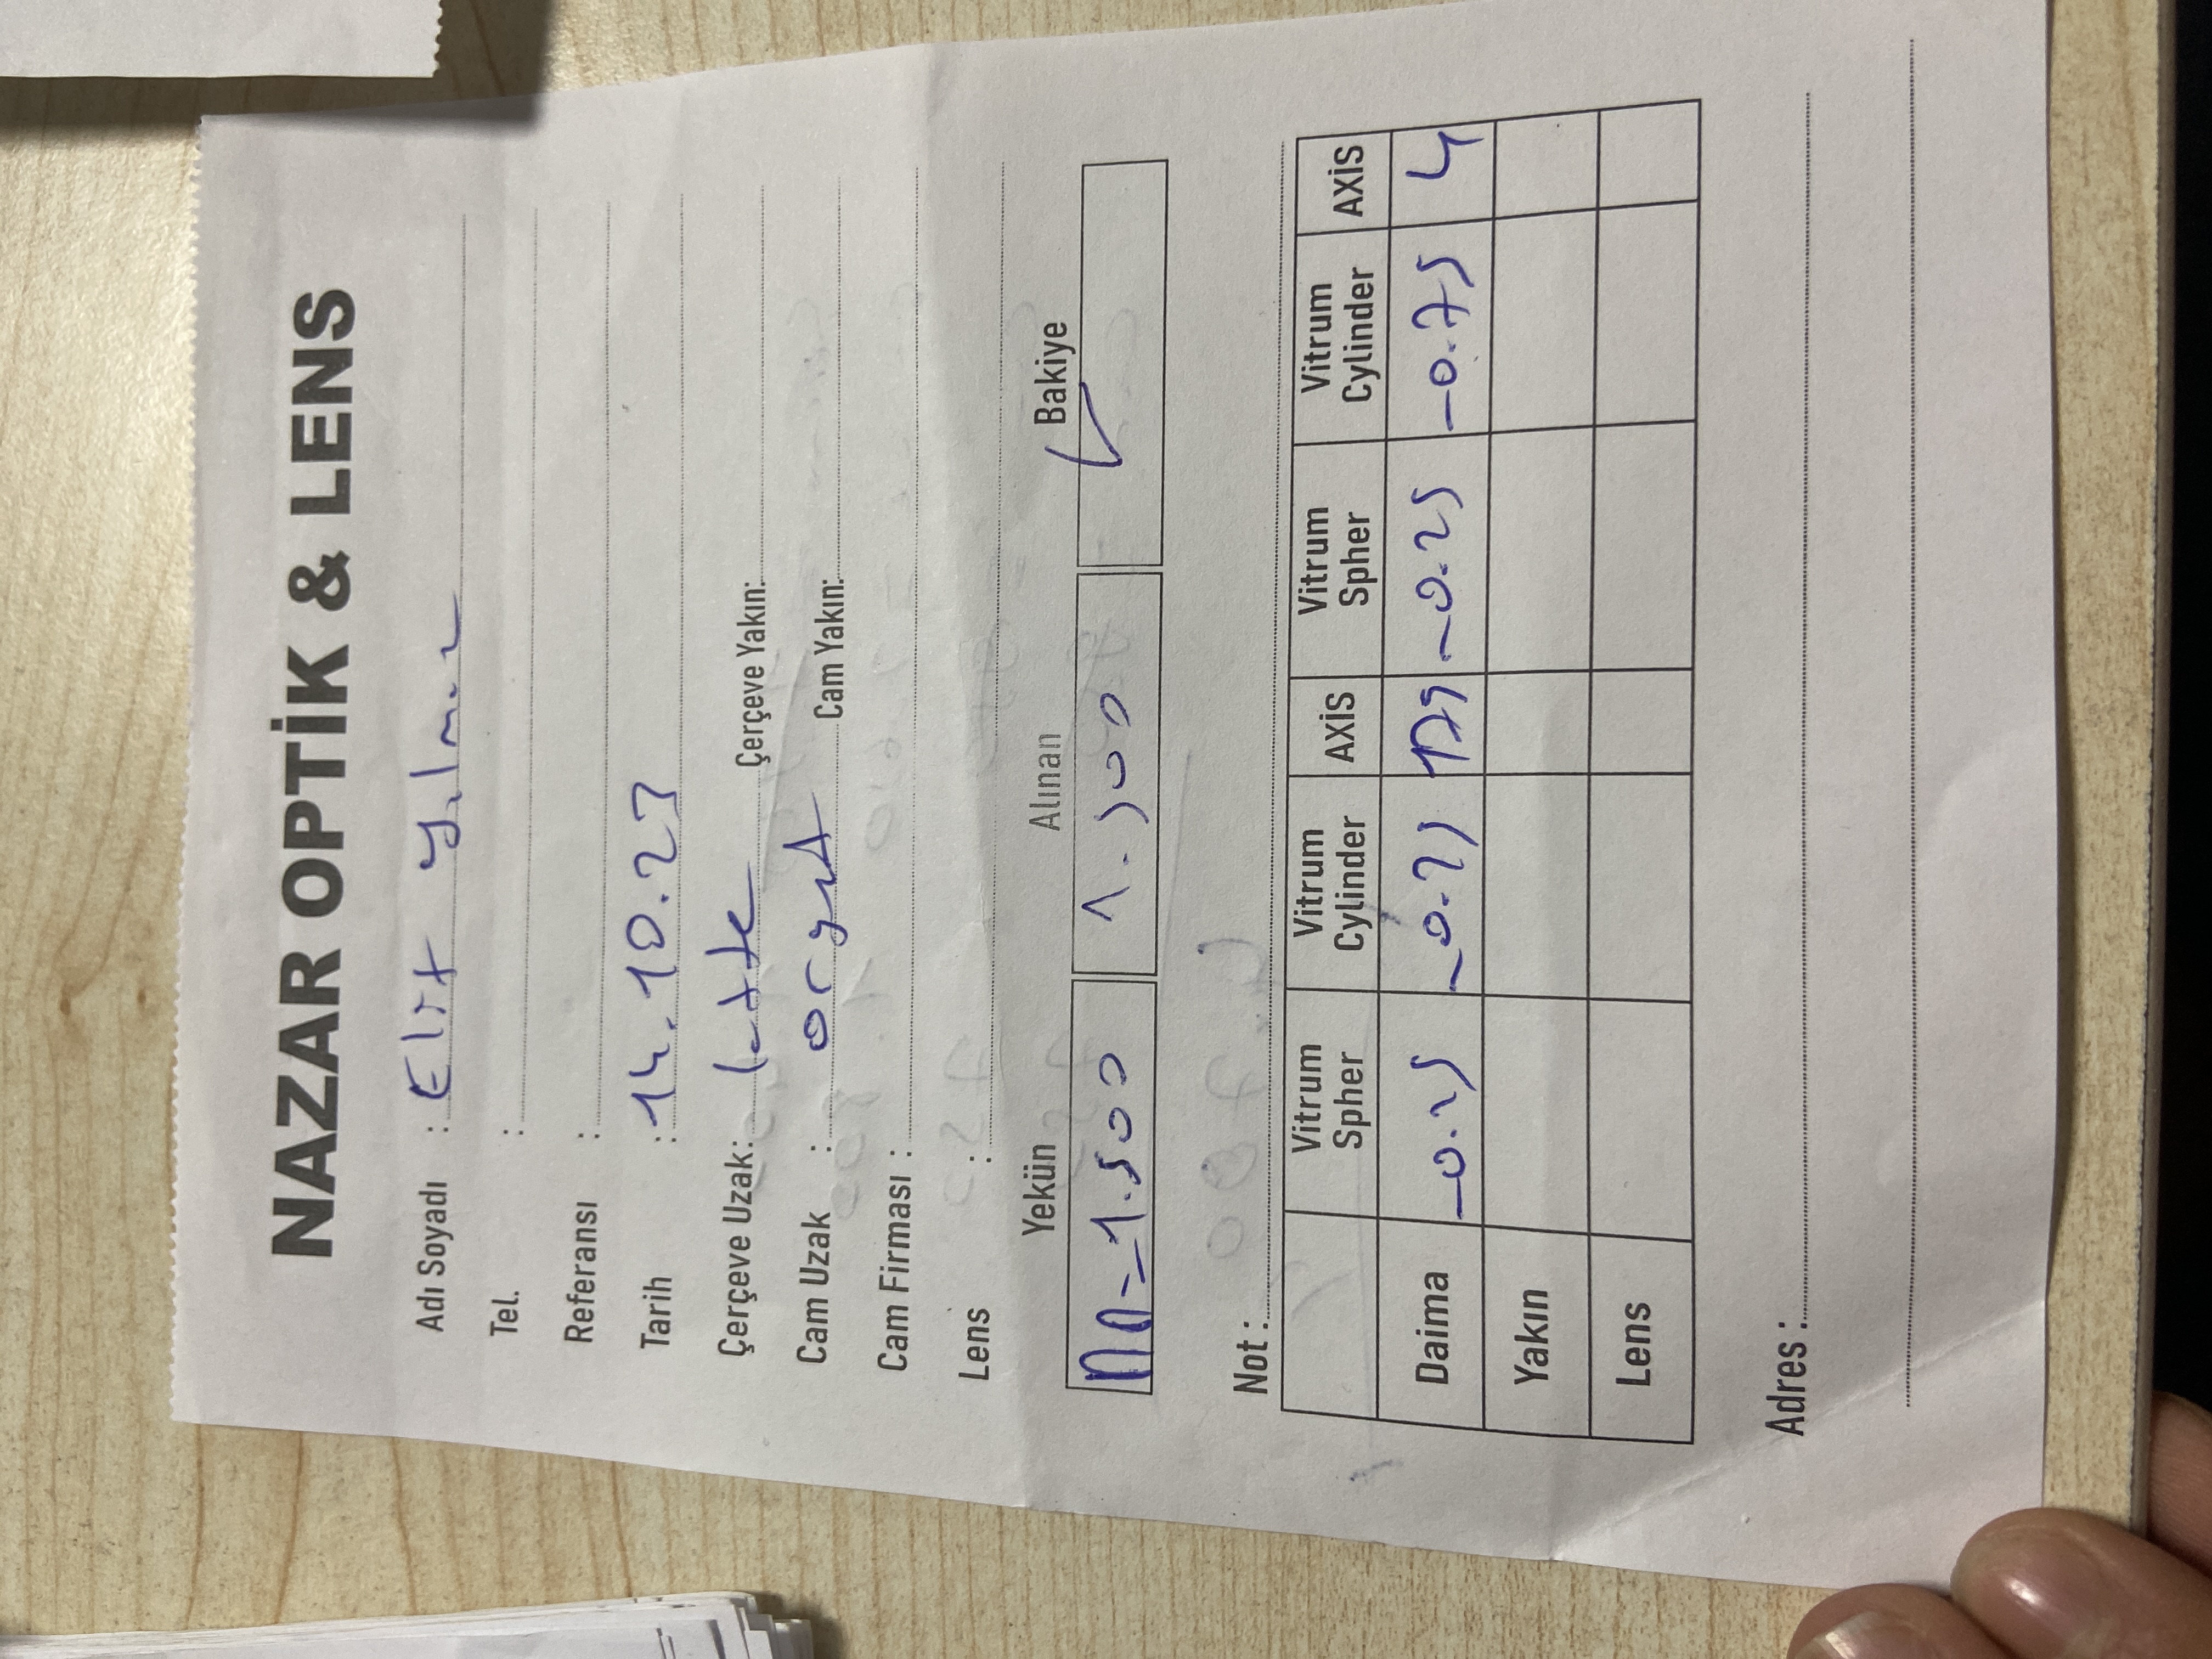 NAZAR OPTİK & LENS
Adı Soyadı : Elif Yılmaz
Tel. :
Referansı :
Tarih : 14.10.23
Çerçeve Uzak: latte Çerçeve Yakın:
Cam Uzak : Cam Yakın:
Cam Firması :
Lens :
Yekün Alınan Bakiye
1.500 1.500
Not :
Vitrum Spher Vitrum Cylinder AXİS Vitrum Spher Vitrum Cylinder AXİS
Daima -0.25 179 -0.25 -0.75 4
Yakın
Lens
Adres :